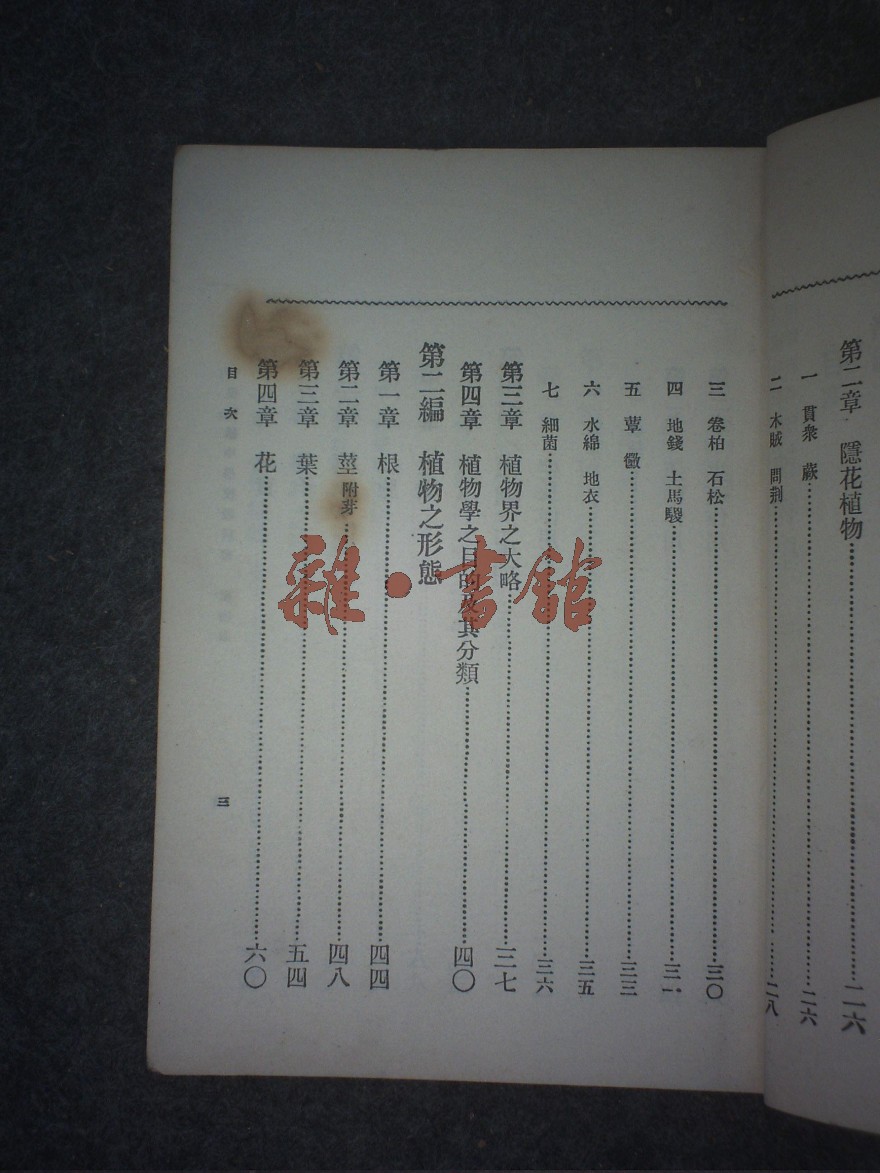 第二章 隱花植物……二六
一 貫衆 蕨……二六
二 木賊 問荆……二八
三 卷柏 石松……三〇
四 地錢 土馬騣……三一
五 蕈 黴……三三
六 水綿 地衣……三五
七 細菌……三六
第三章 植物界之大略……三七
第四章 植物學之目的及其分類……四〇
第二編 植物之形態
第一章 根……四四
第二章 莖 附芽……四八
第三章 葉……五四
第四章 花……六〇
目次
三
雜·書館